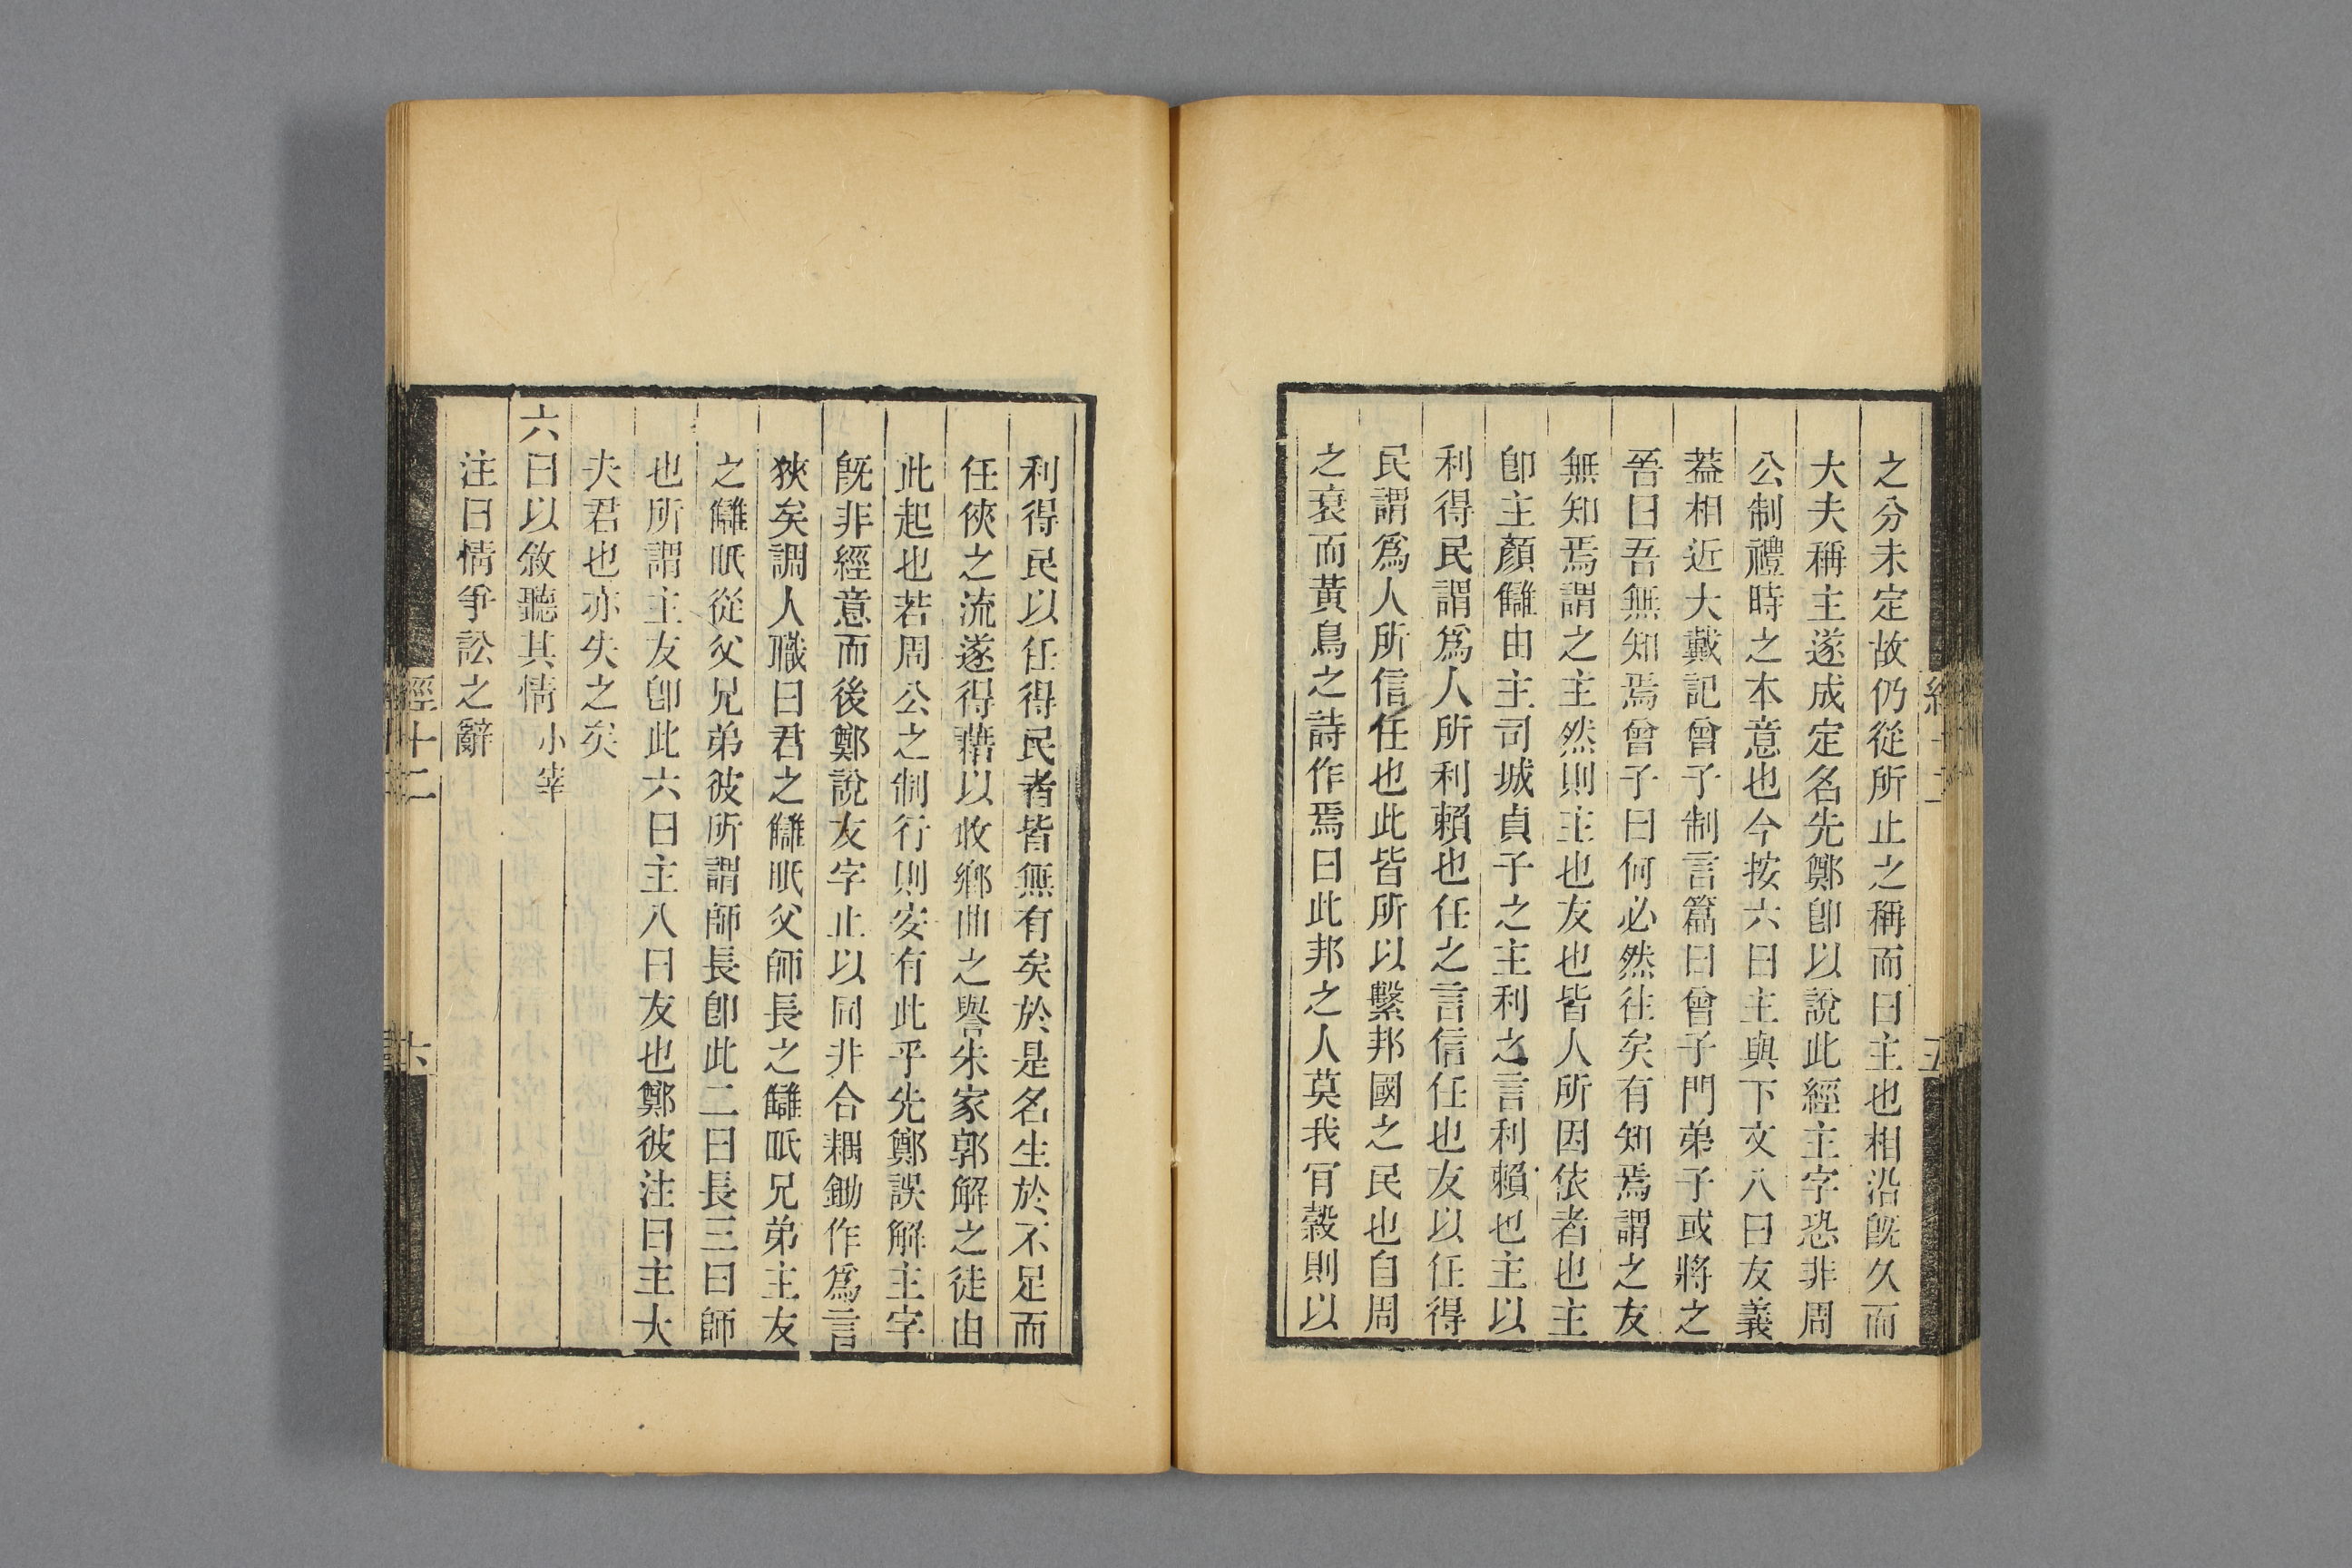 之分未定故仍從所止之稱而曰主也相沿旣久而
大夫稱主遂成定名先鄭卽以說此經主字恐非周
公制禮時之本意也今按六曰主與下文八曰友義
葢相近大戴記曾子制言篇曰曾子門弟子或將之
晉曰吾無知焉曾子曰何必然往矣有知焉謂之友
無知焉謂之主然則主也友也皆人所因依者也主
卽主顏讎由主司城貞子之主利之言利賴也主以
利得民謂爲人所利賴也任之言信任也友以任得
民謂爲人所信任也此皆所以繫邦國之民也自周
之衰而黃鳥之詩作焉曰此邦之人莫我肎榖則以
利得民以任得民者皆無有矣於是名生於不足而
任俠之流遂得藉以收鄕曲之譽朱家郭解之徒由
此起也若周公之制行則安有此乎先鄭誤解主字
旣非經意而後鄭說友字止以同井合耦鋤作爲言
狹矣調人職曰君之讎眡父師長之讎眡兄弟主友
之讎眡從父兄弟彼所謂師長卽此二曰長三曰師
也所謂主友卽此六曰主八曰友也鄭彼注曰主大
夫君也亦失之矣
六曰以敘聽其情 小宰
注曰情爭訟之辭
經十二
六